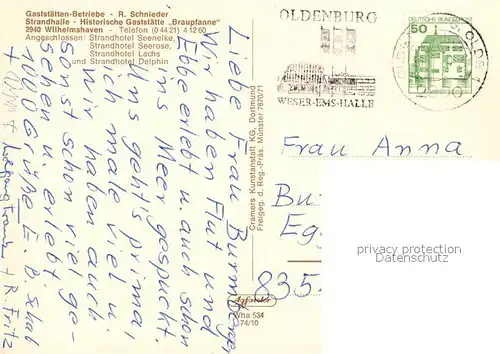 Gaststätten-Betriebe - R. Schnieder
Strandhalle - Historische Gaststätte „Braupfanne"
2940 Wilhelmshaven - Telefon (0 44 21) 4 12 60
Angeschlossen: Strandhotel Seenelke,
Strandhotel Seerose,
Strandhotel Lachs
und Strandhotel Delphin
Liebe Frau Burmberger
Wir haben Flut und
Ebbe erlebt u. auch schon
ins Meer gespuckt.
Uns geht's prima,
ich male viel u.
wir haben auch
sonst schon viel ge-
sehen u. erlebt.
1000 Grüße E. B. Schal
+ R. Fritz
Cramers Kunstanstalt KG, Dortmund
Freigeg. d. Reg.-Präs. Münster 7870/71
OLDENBURG
WESER-EMS-HALLE
DEUTSCHE BUNDESPOST
50
OLDB
Frau Anna
Bu
Eg
835
privacy protection
(ansichtskarten-lexikon.de)
Wha 534
74/10